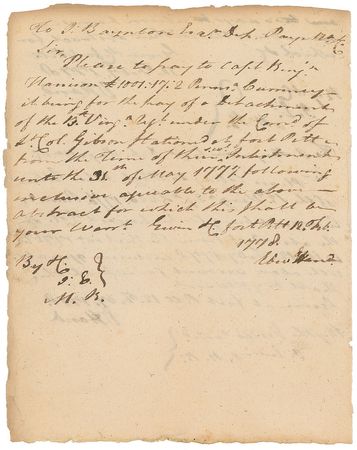 To P. Baynton Esqr. Dep. Paym.
Sir,
Please to pay to Capt. Benj.n
Harrison £ 1001:17:2 Penna. Currency
it being for the pay of a Detachment
of the 13. Virga. Regt. under the Comd. of
Lt. Col. Gibson Stationed at fort Pitt
from the Time of their Inlistment
unto the 31st of May 1777 following
inclusive agreeable to the above
abstract for which this shall be
your Warrt. Given fort Pitt Feb.
1778
Edwd. Hand.
By